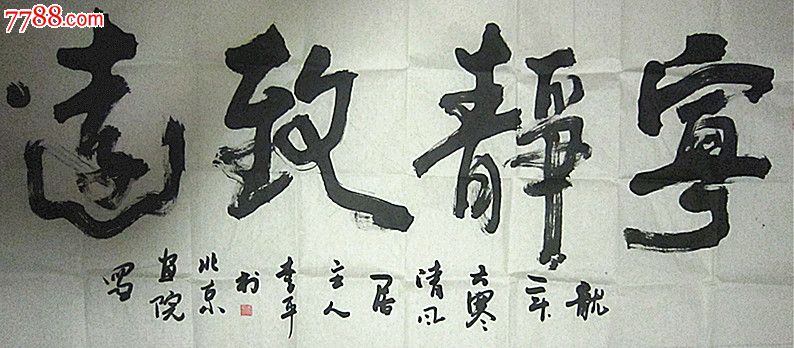 7788.com
寧靜致遠
龍
年
大寒
清風
居
主人
李平
於
北京
畫院
写